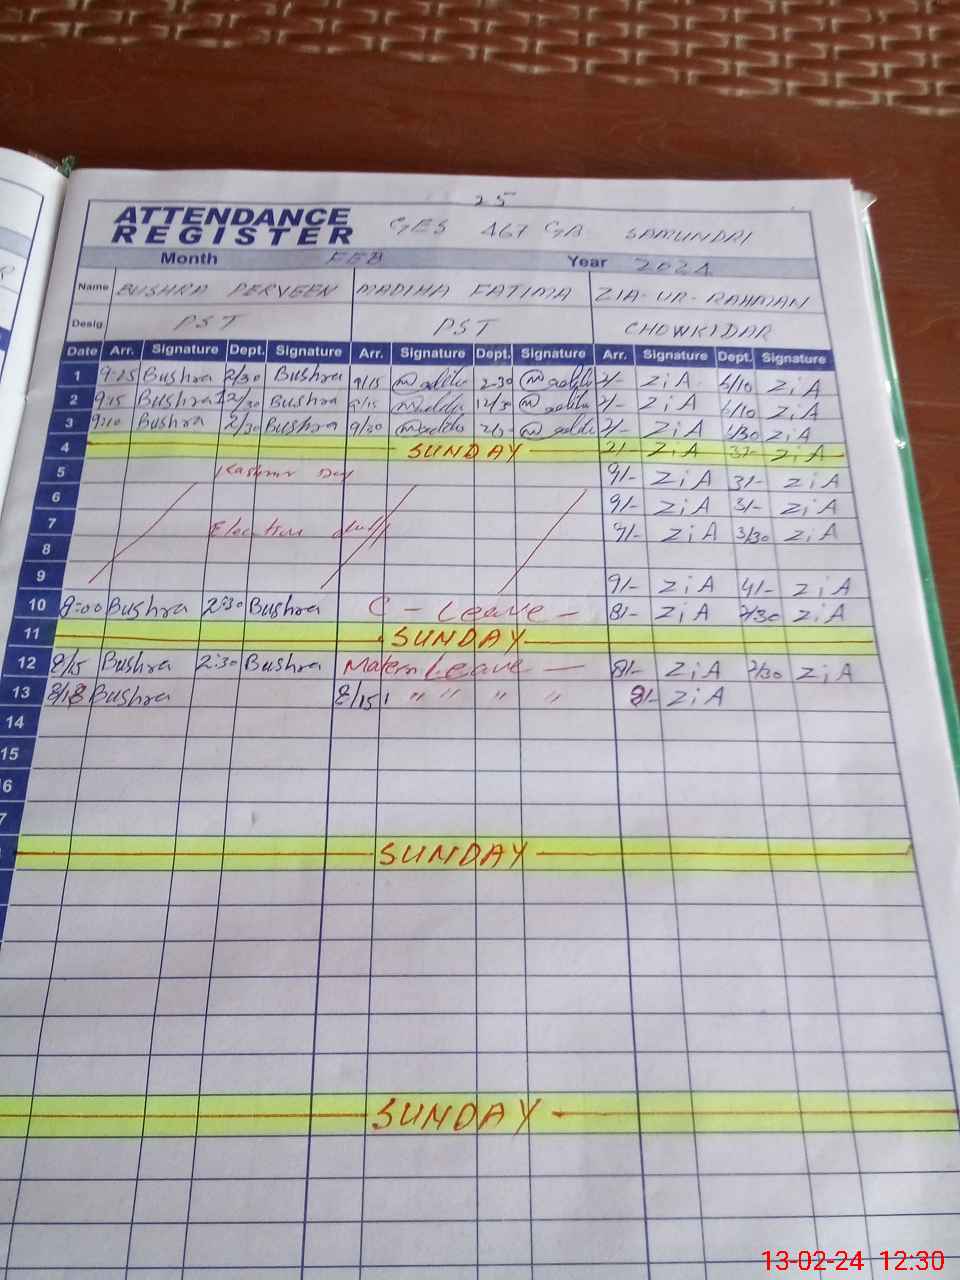 25
ATTENDANCE REGISTER GES 467 GB SAMUNDRI
Month FEB Year 2024
Name BUSHRA PERVEEN MADIHA FATIMA ZIA-UR-RAHMAN
Desig PST PST CHOWKIDAR
Date Arr. Signature Dept. Signature Arr. Signature Dept. Signature Arr. Signature Dept. Signature
1 9:15 Bushra 2/30 Bushra 9/15 2-30 ZiA 6/10 ZiA
2 9:15 Bushra 12/30 Bushra 9/15 12/30 ZiA 6/10 ZiA
3 Bushra 2/30 Bushra 9/20 ZiA ZiA
4 SUNDAY ZiA ZiA
5 Kashmir Day 9/- ZiA 3/- ZiA
6 9/- ZiA 3/- ZiA
7 Election duty 9/- ZiA 3/30 ZiA
8
9 9/- ZiA 4/- ZiA
10 8:00 Bushra 2:30 Bushra C - Leave - 8/- ZiA 2/30 ZiA
11 SUNDAY
12 8/15 Bushra 2:30 Bushra Matern Leave - 8/- ZiA 2/30 ZiA
13 8/18 Bushra 8/15 " " " " 8/- ZiA
14
15
16
7
SUNDAY
SUNDAY
13-02-24 12:30